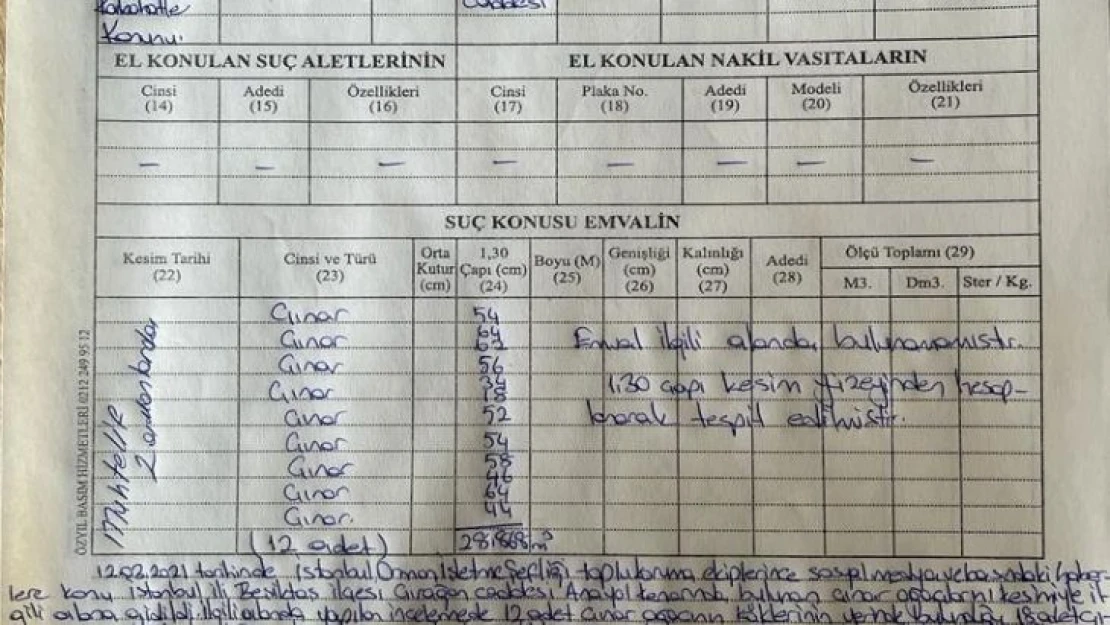 Kabahatle
Konnu.
Caddesi
EL KONULAN SUÇ ALETLERİNİN
EL KONULAN NAKİL VASITALARIN
Cinsi (14) Adedi (15) Özellikleri (16) Cinsi (17) Plaka No. (18) Adedi (19) Modeli (20) Özellikleri (21)
— — — — — — — —
SUÇ KONUSU EMVALİN
Kesim Tarihi (22) Cinsi ve Türü (23) Orta Kutur (cm) 1,30 Çapı (cm) (24) Boyu (M) (25) Genişliği (cm) (26) Kalınlığı (cm) (27) Adedi (28) Ölçü Toplamı (29)
M3. Dm3. Ster / Kg.
Muhtelif
Çınar 54
Çınar 64
Emval ilgili alanda bulunamamıştır.
Çınar 56
Çınar 18
1.30 çapı kesim yüzeyinden hesap-
Çınar 52
lanarak tespit edilmiştir.
Çınar 54
Çınar 58
46
Çınar 64
Çınar. 44
(12 adet) 28,868 m³
ÖZYIL BASIM HİZMETLERİ 0212 249 95 12
12.02.2021 tarihinde İstanbul Orman İşletme Şefliği toplu koruma ekiplerince sosyal medya ve basındaki haber-
lere konu İstanbul ili Beşiktaş ilçesi Çırağan caddesi Anayol kenarında bulunan çınar ağaçlarını kesmiyle il-
gili alana gidildi. İlgili alanda yapılan incelemede 12 adet çınar ağacının köklerinin